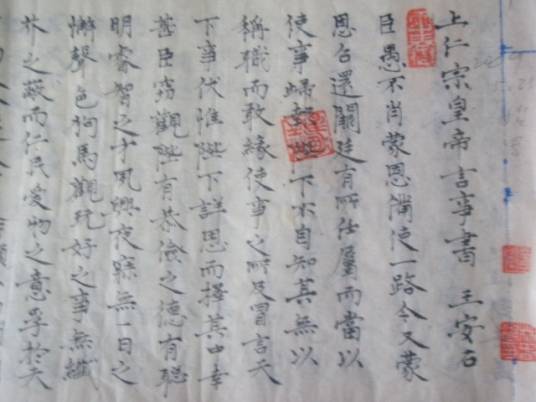 上仁宗皇帝言事書 王安石
臣愚不肖蒙恩備使一路今又蒙
恩召還闕廷有所任屬而當以
使事歸報陛下不自知其無以
稱職而敢緣使事之所及冒言天
下事伏惟陛下詳思而擇其中幸
甚臣竊觀陛下有恭儉之德有聰
明睿智之才夙興夜寐無一日之
懈聲色狗馬觀玩好之事無纖
芥之蔽而仁民愛物之意孚於天